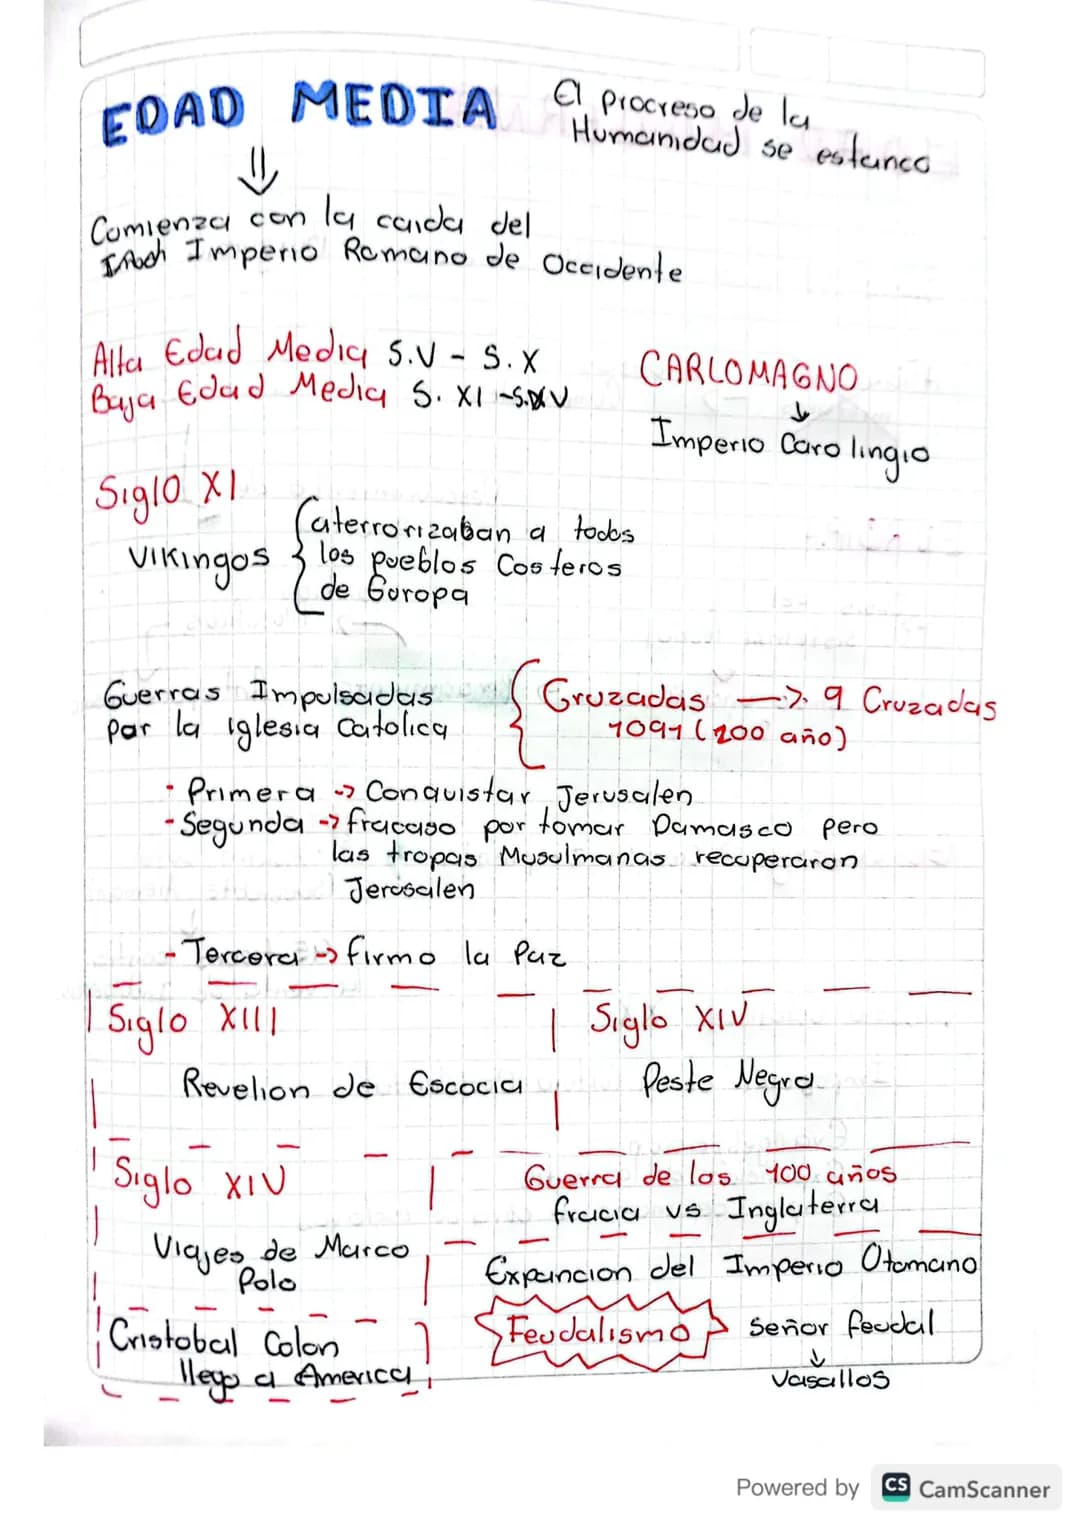 EDAD MEDIA
El procreso de la
Humanidad se estanco
Comienza con la caida del
Imperio Romano de Occidente
Alta Edad Media S.V - S.X
Baja Edad Media S. XI -S.XV
CARLOMAGNO
Imperio Carolingio
Siglo XI
Vikingos
aterrorizaban a todos
los pueblos Costeros
de Europa
Guerras Impulsadas
Por la iglesia Catolica
Cruzadas -> 9 Cruzadas
1091 (200 año)
· Primera -> Conquistar Jerusalen
- Segunda -> fracaso por tomar Damasco pero
las tropas Musulmanas recuperaron
Jerusalen
- Tercera -> firmo la Paz
Siglo XIII
Revelion de Escocia
Siglo XIV
Peste Negra
Siglo XIV
Viajes de Marco
Polo
Guerra de los 100 años
fracia vs Inglaterra
Expancion del Imperio Otomano
Cristobal Colon
llego a America
Feudalismo
Señor feudal
Vasallos
Powered by CS CamScanner